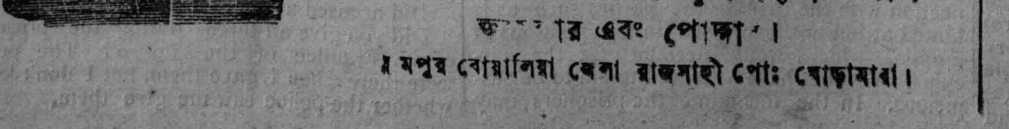 এবং পোদ্দার।
রামপুর বোয়ালিয়া জেলা রাজসাহী পোঃ ঘোড়ামারা।